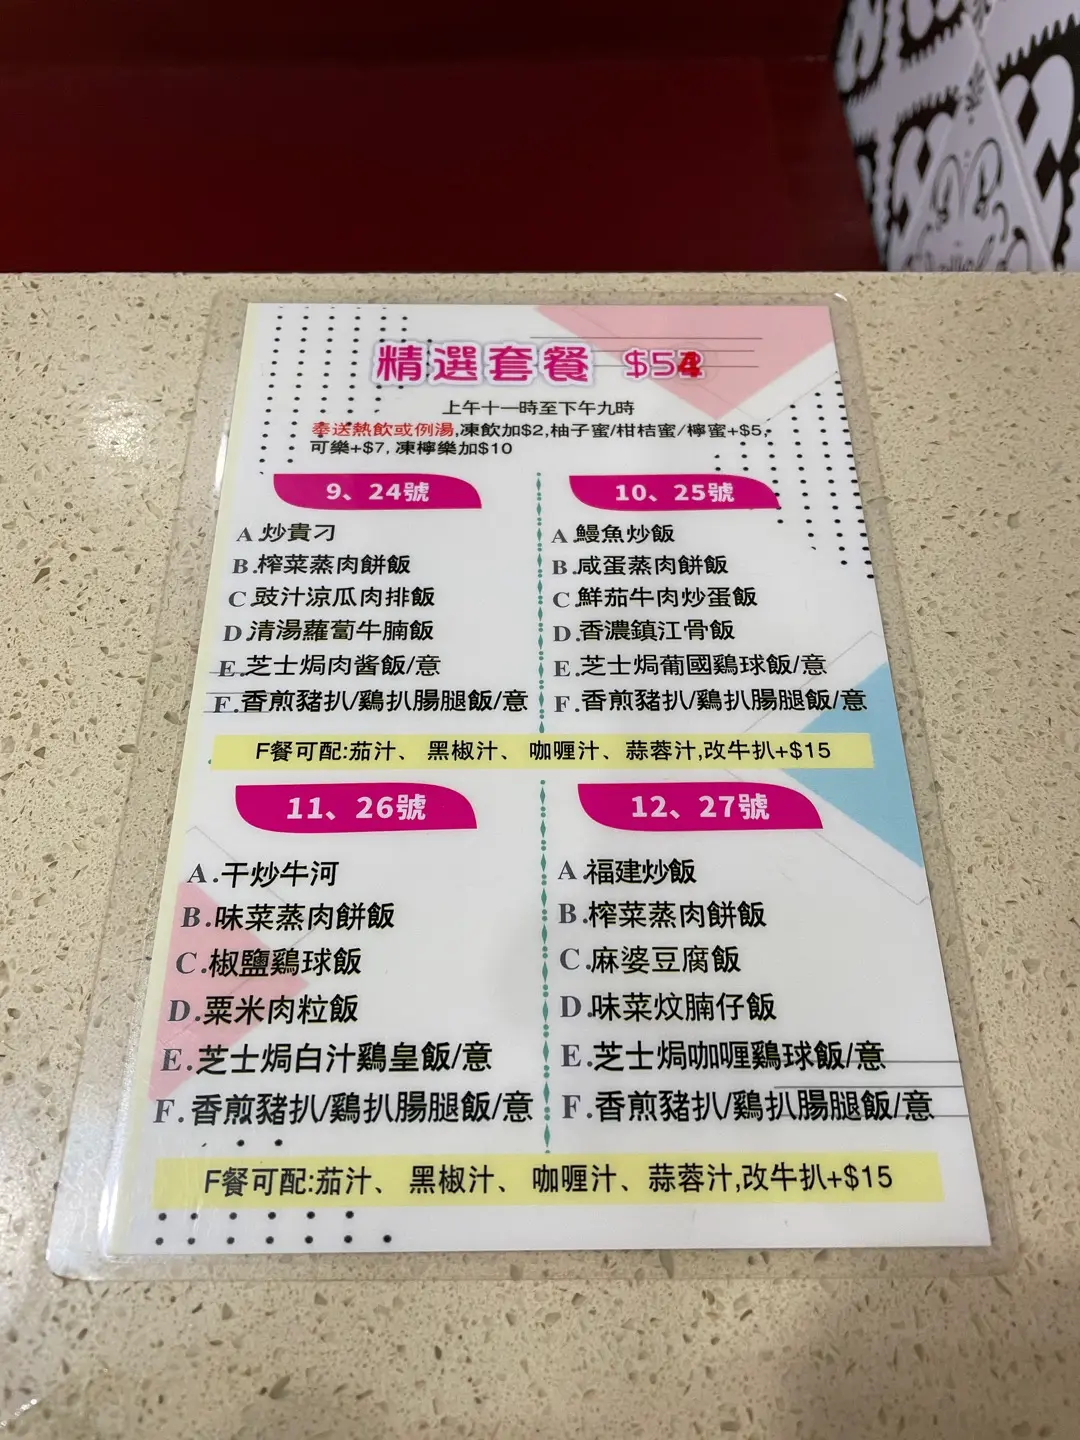 精選套餐 $54
上午十一時至下午九時
奉送熱飲或例湯,凍飲加$2,柚子蜜/柑桔蜜/檸蜜+$5,
可樂+$7, 凍檸樂加$10
9、24號
A.炒貴刁
B.榨菜蒸肉餅飯
C.豉汁涼瓜肉排飯
D.清湯蘿蔔牛腩飯
E.芝士焗肉酱飯/意
F.香煎豬扒/鷄扒腸腿飯/意
10、25號
A.鰻魚炒飯
B.咸蛋蒸肉餅飯
C.鮮茄牛肉炒蛋飯
D.香濃鎮江骨飯
E.芝士焗葡國鷄球飯/意
F.香煎豬扒/鷄扒腸腿飯/意
F餐可配:茄汁、 黑椒汁、 咖喱汁、蒜蓉汁,改牛扒+$15
11、26號
A.干炒牛河
B.味菜蒸肉餅飯
C.椒鹽鷄球飯
D.粟米肉粒飯
E.芝士焗白汁鷄皇飯/意
F.香煎豬扒/鷄扒腸腿飯/意
12、27號
A.福建炒飯
B.榨菜蒸肉餅飯
C.麻婆豆腐飯
D.味菜炆腩仔飯
E.芝士焗咖喱鷄球飯/意
F.香煎豬扒/鷄扒腸腿飯/意
F餐可配:茄汁、 黑椒汁、 咖喱汁、蒜蓉汁,改牛扒+$15